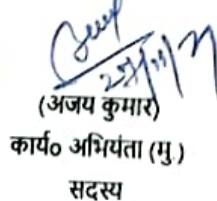 (अजय कुमार)
कार्य० अभियंता (मु.)
सदस्य